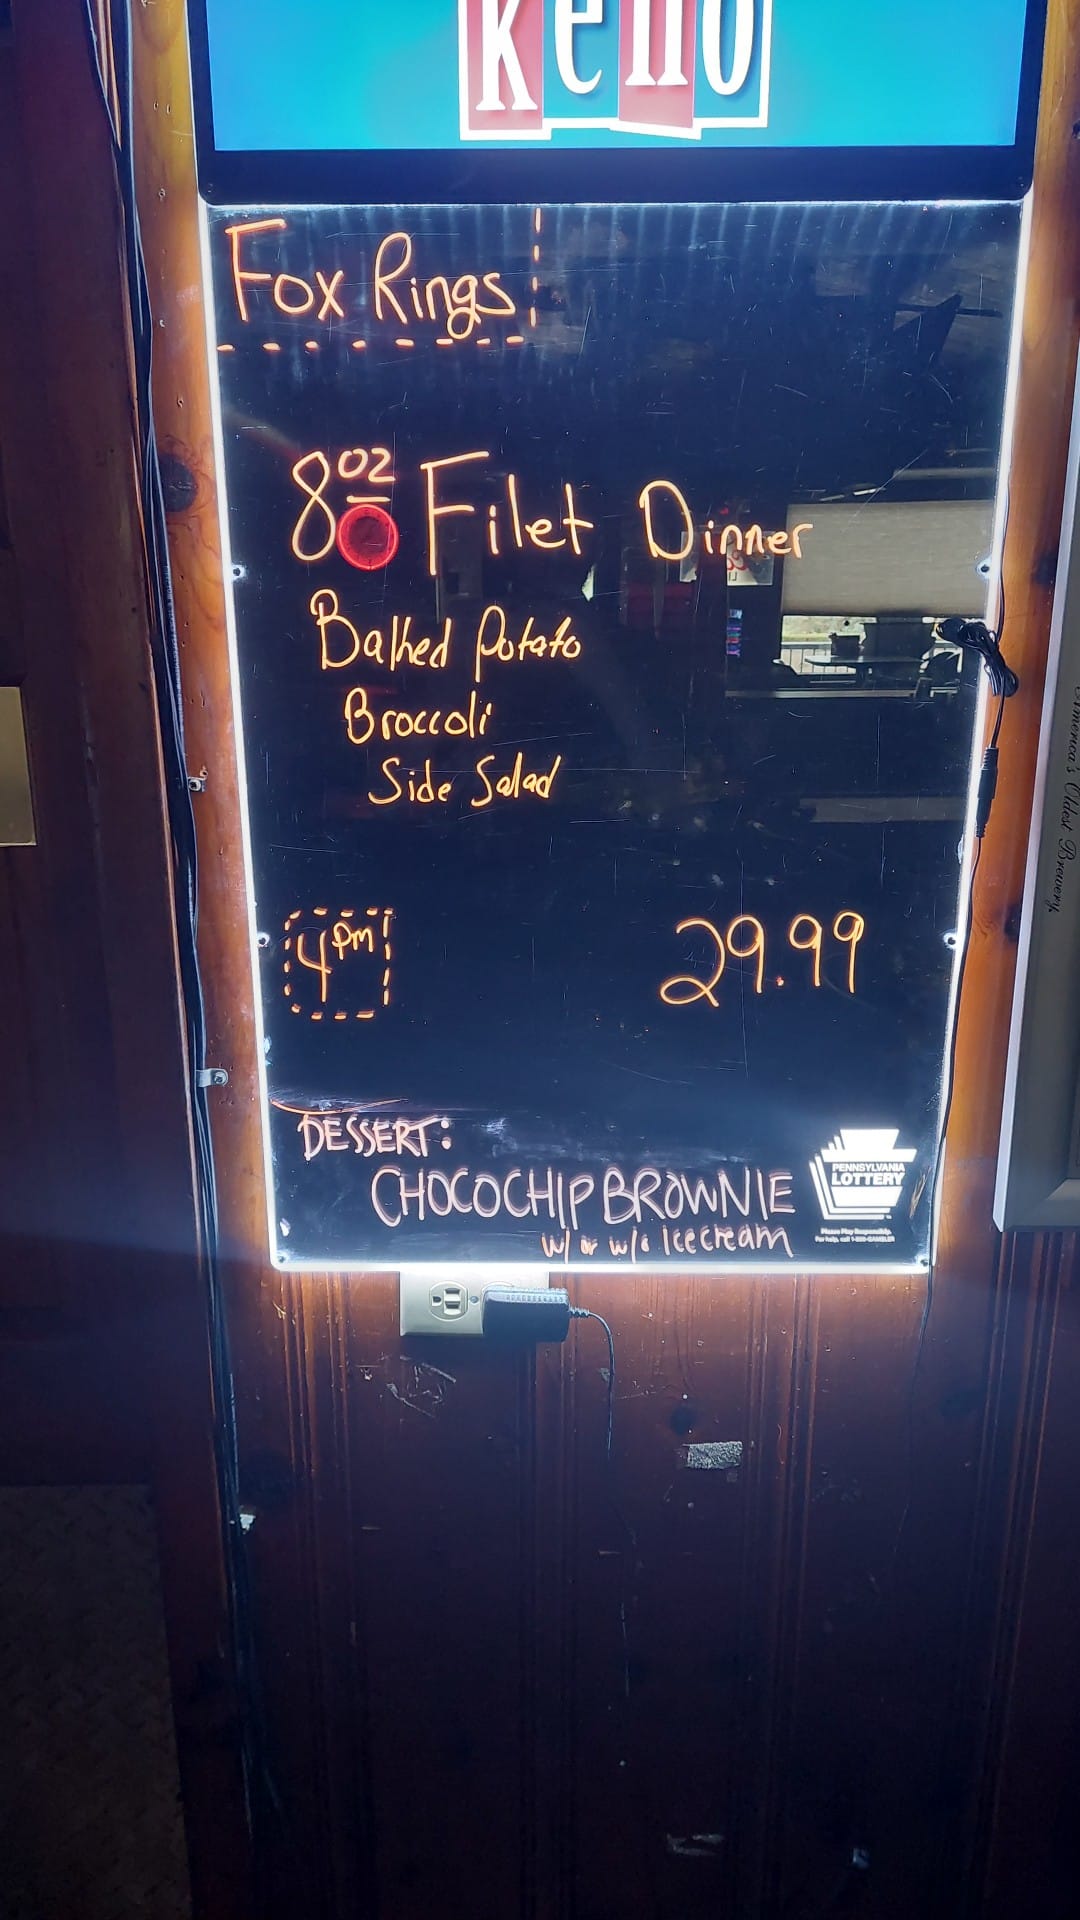 keno
Fox Rings
8 oz Filet Dinner
Balked Potato
Broccoli
Side Salad
4 pm
29.99
DESSERT:
CHOCOCHIP BROWNIE
w/ or w/o Icecream
PENNSYLVANIA
LOTTERY
Please Play Responsibly.
For help, call 1-800-GAMBLER
America's Oldest Brewery.